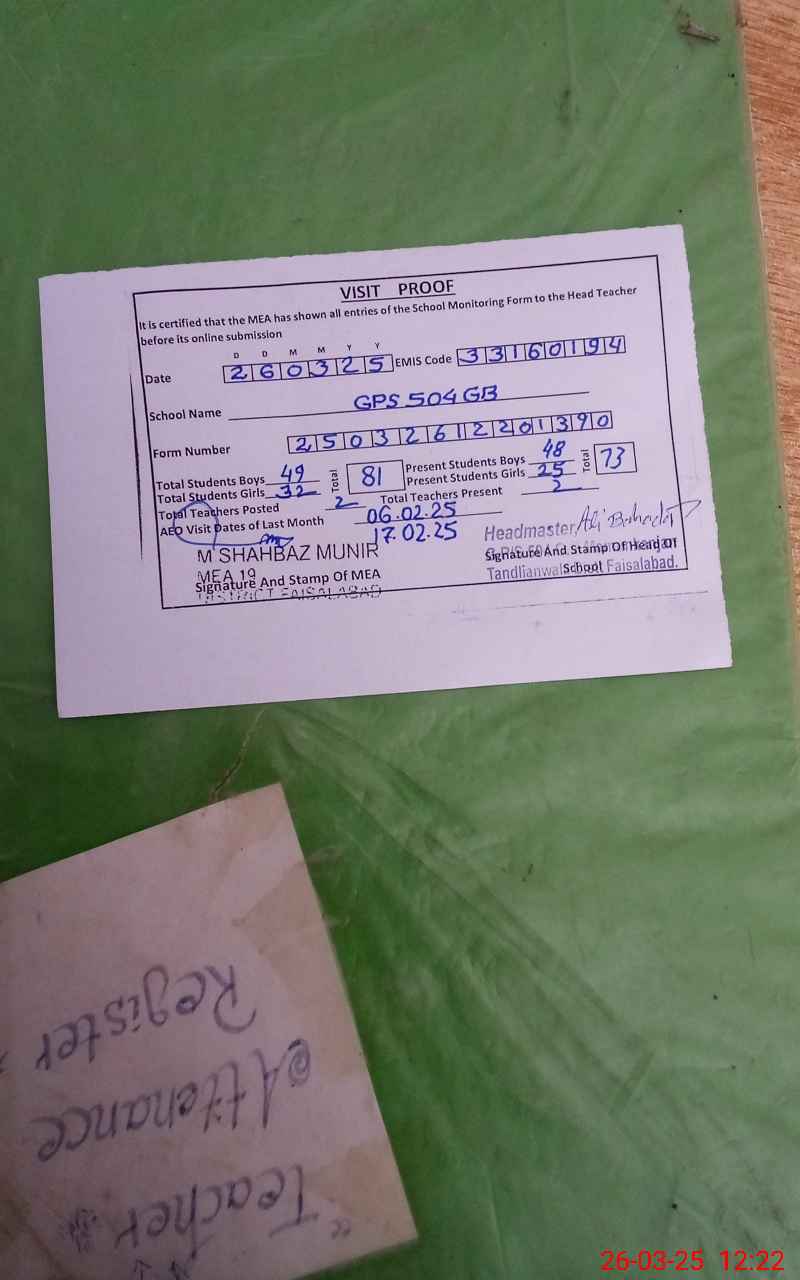 VISIT PROOF
It is certified that the MEA has shown all entries of the School Monitoring Form to the Head Teacher
before its online submission
D D M M Y Y
Date 260325 EMIS Code 33160194
School Name GPS 504 GB
Form Number 25032612201390
Total Students Boys 49 Total 81 Present Students Boys 48 Total 73
Total Students Girls 32 Present Students Girls 25
Total Teachers Posted 2 Total Teachers Present 2
AEO Visit Dates of Last Month 06.02.25
17.02.25
M SHAHBAZ MUNIR
MEA 19
Signature And Stamp Of MEA
DISTRICT FAISALABAD
Headmaster, Ali Bahadar
Signature And Stamp Of Head Of
School
Tandlianwala Faisalabad.
"Teacher
Attenance
Register
26-03-25 12:22